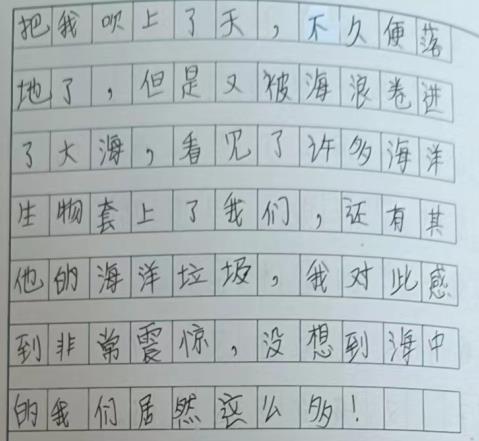 把我吹上了天，不久便落
地了，但是又被海浪卷进
了大海，看见了许多海洋
生物套上了我们，还有其
他的海洋垃圾，我对此感
到非常震惊，没想到海中
的我们居然这么多！